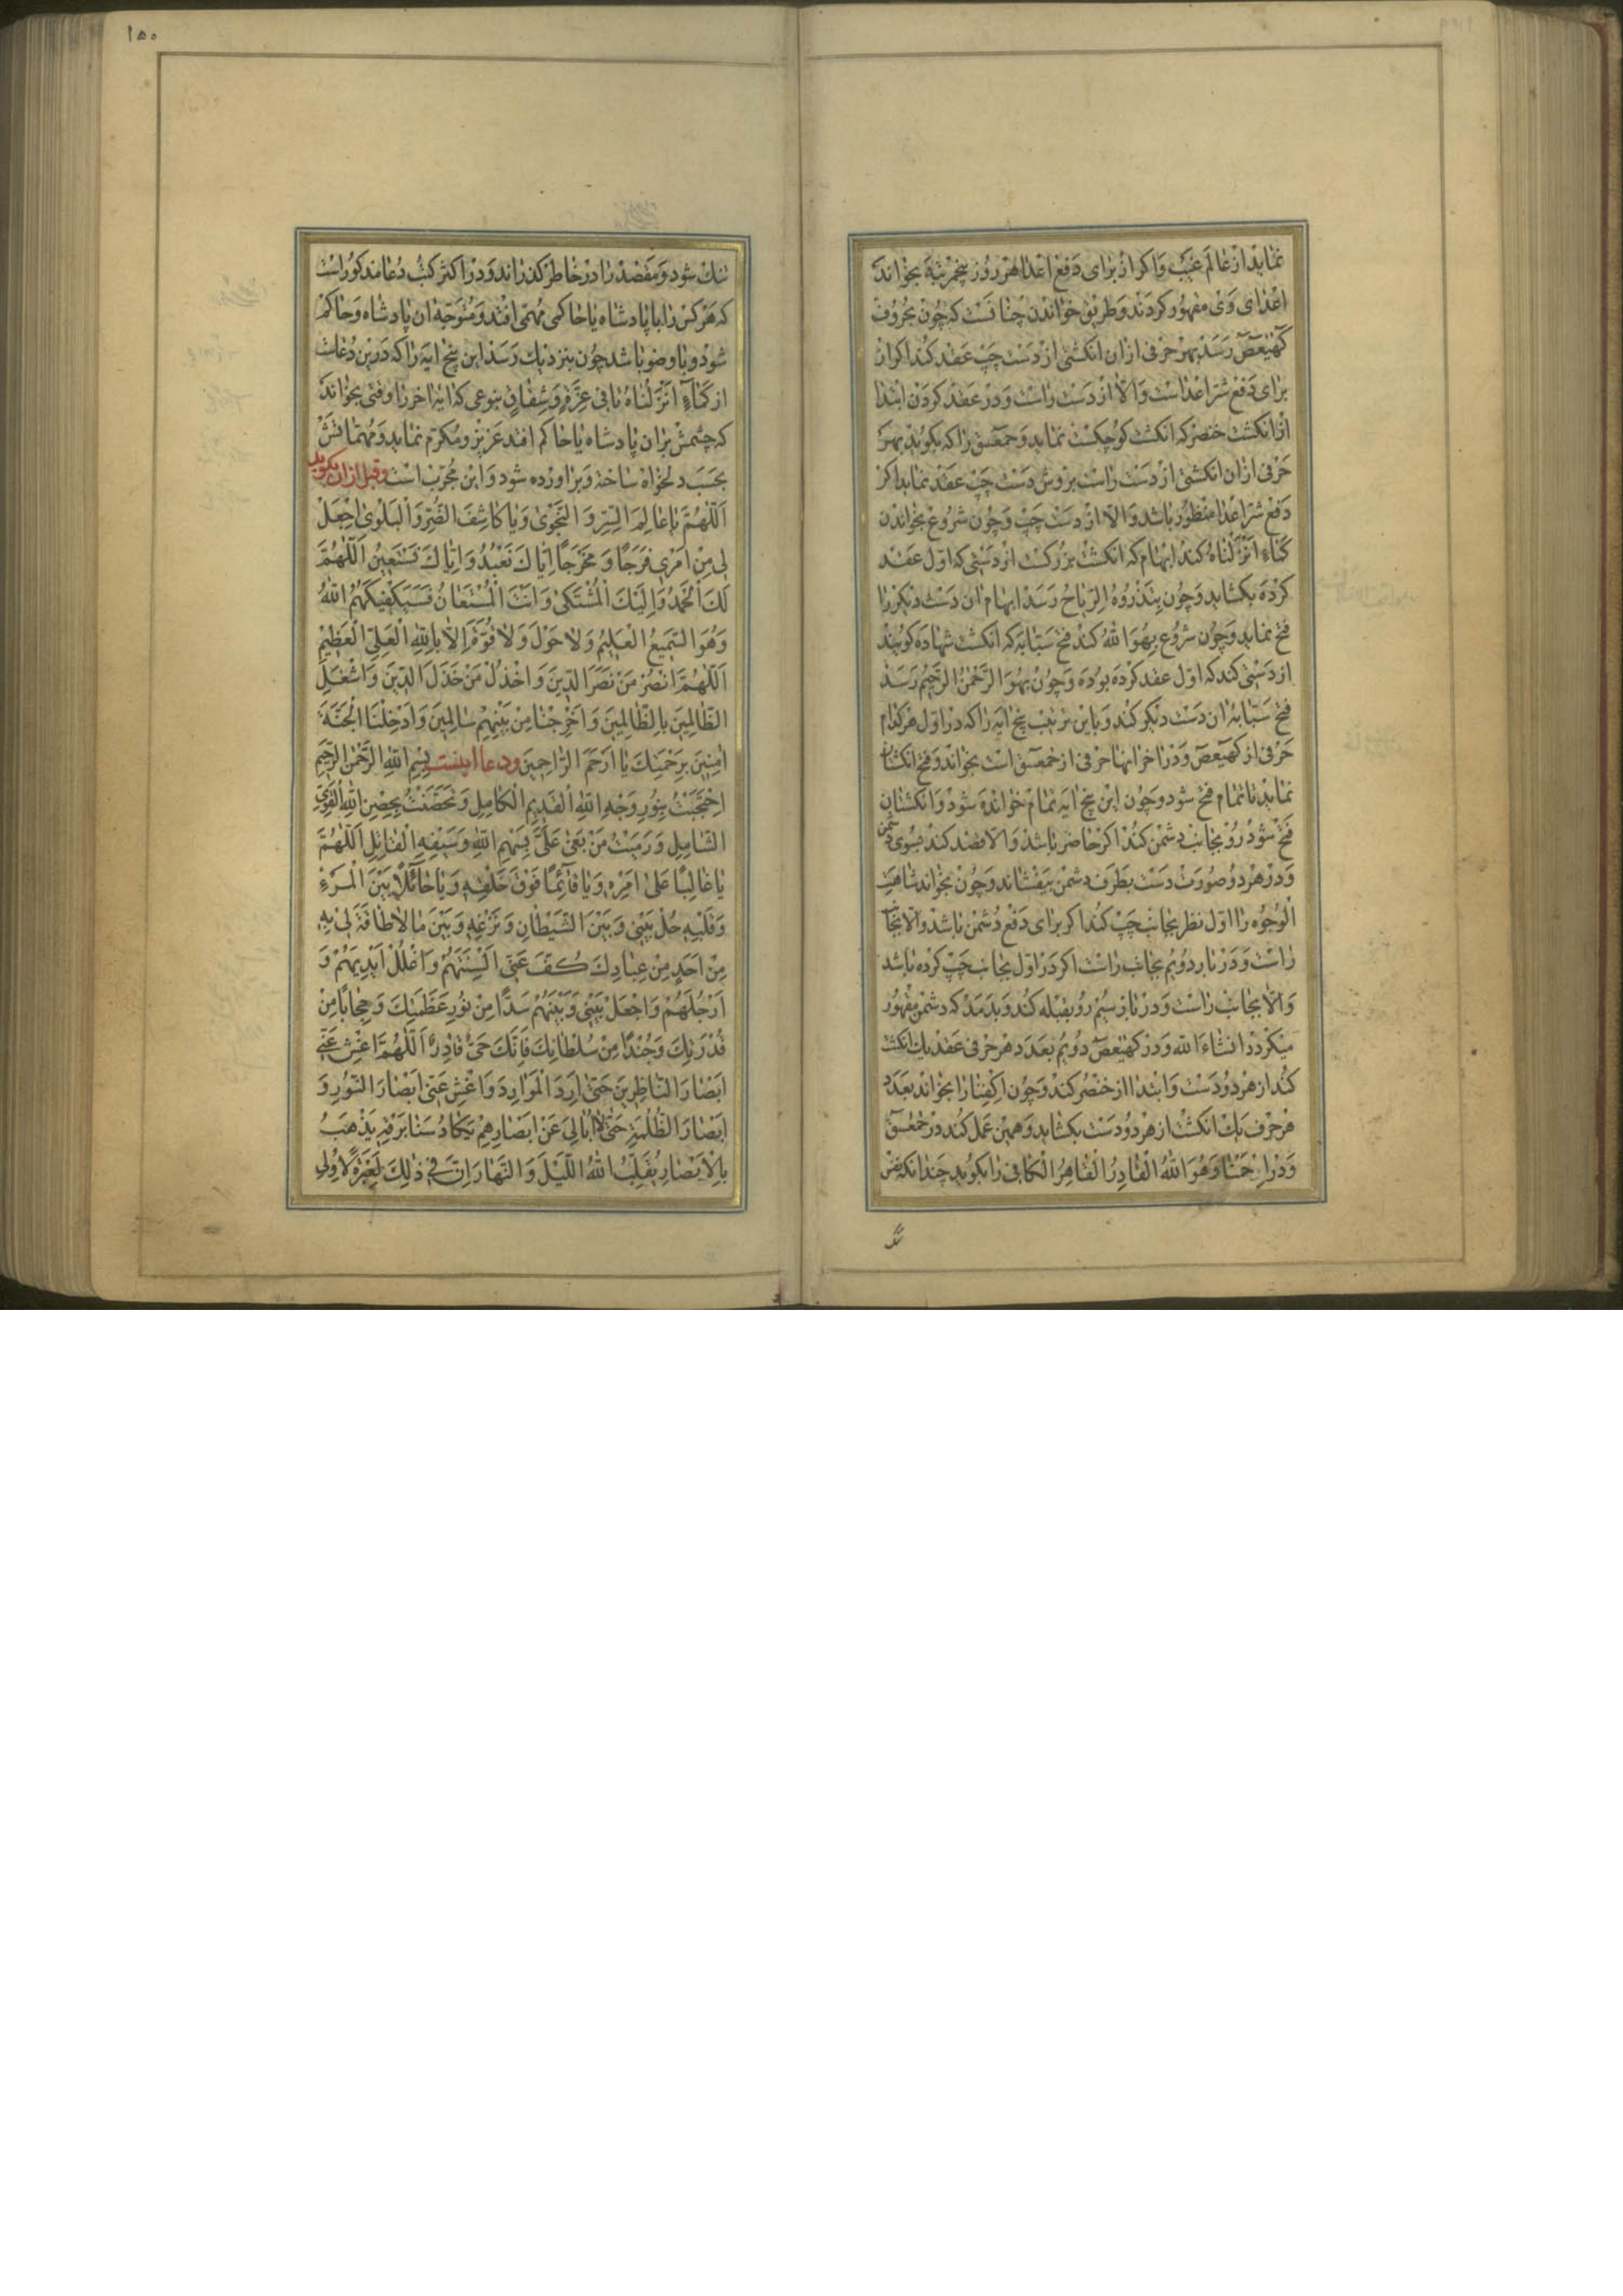 نماید از عالم غیب و اکر از برای دفع اعدا هر روز پنجمرتبه بخواند
اعدای وی مقهور کردند و طریق خواندن چنانست که چون بحروف
کهیعص رسد بهر حرفی ازان انکشتی از دست چپ عقد کند اکر از
برای دفع شر اعداست و الا از دست راست و در عقد کردن ابتدا
از انکشت خنصر که انکشت کوچکست نماید و حمعسق را که بکوید بهر
حرفی ازان انکشتی از دست راست بروش دست چپ عقد نماید اکر
دفع شر اعدا منظور باشد و الا از دست چپ و چون شروع بخواندن
کَمَاءٍ اَنْزَلْنَاهُ کند ابهام که انکشت بزرکست از دستی که اول عقد
کرده بکشاید و چون بتَذْرُوهُ الرِّیَاحُ رسد ابهام ان دست دیکر را
فتح نماید و چون شروع بهُوَ اللهُ کند فتح سبابه که انکشت شهاده کویند
از دستی کند که اول عقد کرده بوده و چون بهُوَ الرَّحْمٰنُ الرَّحِیمُ رسد
فتح سبابه ان دست دیکر کند و باین ترتیب پنج ایه را که در اول هر کدام
حرفی از کهیعص و در اخر انها حرفی از حمعسق است بخواند و فتح انکشتان
نماید تا تمام فتح شود و چون این پنج ایه تمام خوانده شود و انکشتان
فتح شود رو بجانب دشمن کند اکر حاضر باشد و الا قصد کند بسوی دشمن
و در هر دو صورت دست بطرف دشمن بیفشاند و چون بخواند شاهت
الوجوه را اول نظر بجانب چپ کند اکر برای دفع دشمن باشد و الا بجانب
راست و در بار دویم بجانب راست اکر در اول بجانب چپ کرده باشد
و الا بجانب راست و در بار سیم رو بقبله کند و بدمد که دشمن مقهور
میکردد انشاء الله و در کهیعص دویم بعدد هر حرفی عقد یک انکشت
کند از هر دو دست و ابتدا از خنصر کند و چون اکفنا را بخواند بعدد
هر حرف یک انکشت از هر دو دست بکشاید و همین عمل کند در حمعسق
و در ارحمنا و هُوَ اللهُ الْقَادِرُ الْقَاهِرُ الْکَافِی را بکوید چندانکه نفس
تنک
۱۵۰
تنک شود و مقصد را در خاطر کذراند و در اکثر کتب دعا مذکور است
که هر کس را با پادشاه یا حاکمی مهمی افتد و متوجه ان پادشاه و حاکم
شود و با وضو باشد چون بنزدیک رسد این پنج ایه را که درین دعاست
از کَمَاءٍ اَنْزَلْنَاهُ تا فِی عِزَّةٍ وَشِقَاقٍ بنوعی که ایه اخر را وقتی بخواند
که چشمش بران پادشاه یا حاکم افتد عزیز و مکرم نماید و مهماتش
بحسب دلخواه ساخته و براورده شود و این مجرب است وقبل ازان بکوید
اَللّٰهُمَّ یَا عَالِمَ السِّرِّ وَ النَّجْوٰی وَ یَا کَاشِفَ الضُّرِّ وَ الْبَلْوٰی اجْعَلْ
لِی مِنْ اَمْرِی فَرَجًا وَ مَخْرَجًا اِیَّاكَ نَعْبُدُ وَ اِیَّاكَ نَسْتَعِینُ اَللّٰهُمَّ
لَكَ الْحَمْدُ وَ اِلَیْكَ الْمُشْتَکٰی وَ اَنْتَ الْمُسْتَعَانُ فَسَیَکْفِیکَهُمُ اللهُ
وَ هُوَ السَّمِیعُ الْعَلِیمُ وَ لَا حَوْلَ وَ لَا قُوَّةَ اِلَّا بِاللهِ الْعَلِیِّ الْعَظِیمِ
اَللّٰهُمَّ انْصُرْ مَنْ نَصَرَ الدِّینَ وَ اخْذُلْ مَنْ خَذَلَ الدِّینَ وَ اشْغَلِ
الظَّالِمِینَ بِالظَّالِمِینَ وَ اَخْرِجْنَا مِنْ بَیْنِهِمْ سَالِمِینَ وَ اَدْخِلْنَا الْجَنَّةَ
اٰمِنِینَ بِرَحْمَتِكَ یَا اَرْحَمَ الرَّاحِمِینَ ودعا اینست بِسْمِ اللهِ الرَّحْمٰنِ الرَّحِیمِ
اِحْتَجَبْتُ بِنُورِ وَجْهِ اللهِ الْقَدِیمِ الْکَامِلِ وَ تَحَصَّنْتُ بِحِصْنِ اللهِ الْقَوِیِّ
الشَّامِلِ وَ رَمَیْتُ مَنْ بَغٰی عَلَیَّ بِسَهْمِ اللهِ وَ سَیْفِهِ الْقَاتِلِ اَللّٰهُمَّ
یَا غَالِبًا عَلٰی اَمْرِهِ وَ یَا قَائِمًا فَوْقَ خَلْقِهِ وَ یَا حَائِلًا بَیْنَ الْمَرْءِ
وَ قَلْبِهِ حُلْ بَیْنِی وَ بَیْنَ الشَّیْطَانِ وَ نَزْغِهِ وَ بَیْنَ مَا لَا طَاقَةَ لِی بِهِ
مِنْ اَحَدٍ مِنْ عِبَادِكَ کُفَّ عَنِّی اَلْسِنَتَهُمْ وَ اغْلُلْ اَیْدِیَهُمْ وَ
اَرْجُلَهُمْ وَ اجْعَلْ بَیْنِی وَ بَیْنَهُمْ سَدًّا مِنْ نُورِ عَظَمَتِكَ وَ حِجَابًا مِنْ
قُدْرَتِكَ وَ جُنْدًا مِنْ سُلْطَانِكَ فَاِنَّكَ حَیٌّ قَادِرٌ اَللّٰهُمَّ اغْشِ عَنِّی
اَبْصَارَ النَّاظِرِینَ حَتّٰی اَرِدَ الْمَوَارِدَ وَ اغْشِ عَنِّی اَبْصَارَ النُّورِ وَ
اَبْصَارَ الظُّلْمَةِ حَتّٰی لَا اُبَالِیَ عَنْ اَبْصَارِهِمْ یَکَادُ سَنَا بَرْقِهِ یَذْهَبُ
بِالْاَبْصَارِ یُقَلِّبُ اللهُ اللَّیْلَ وَ النَّهَارَ اِنَّ فِی ذٰلِكَ لَعِبْرَةً لِاُولِی